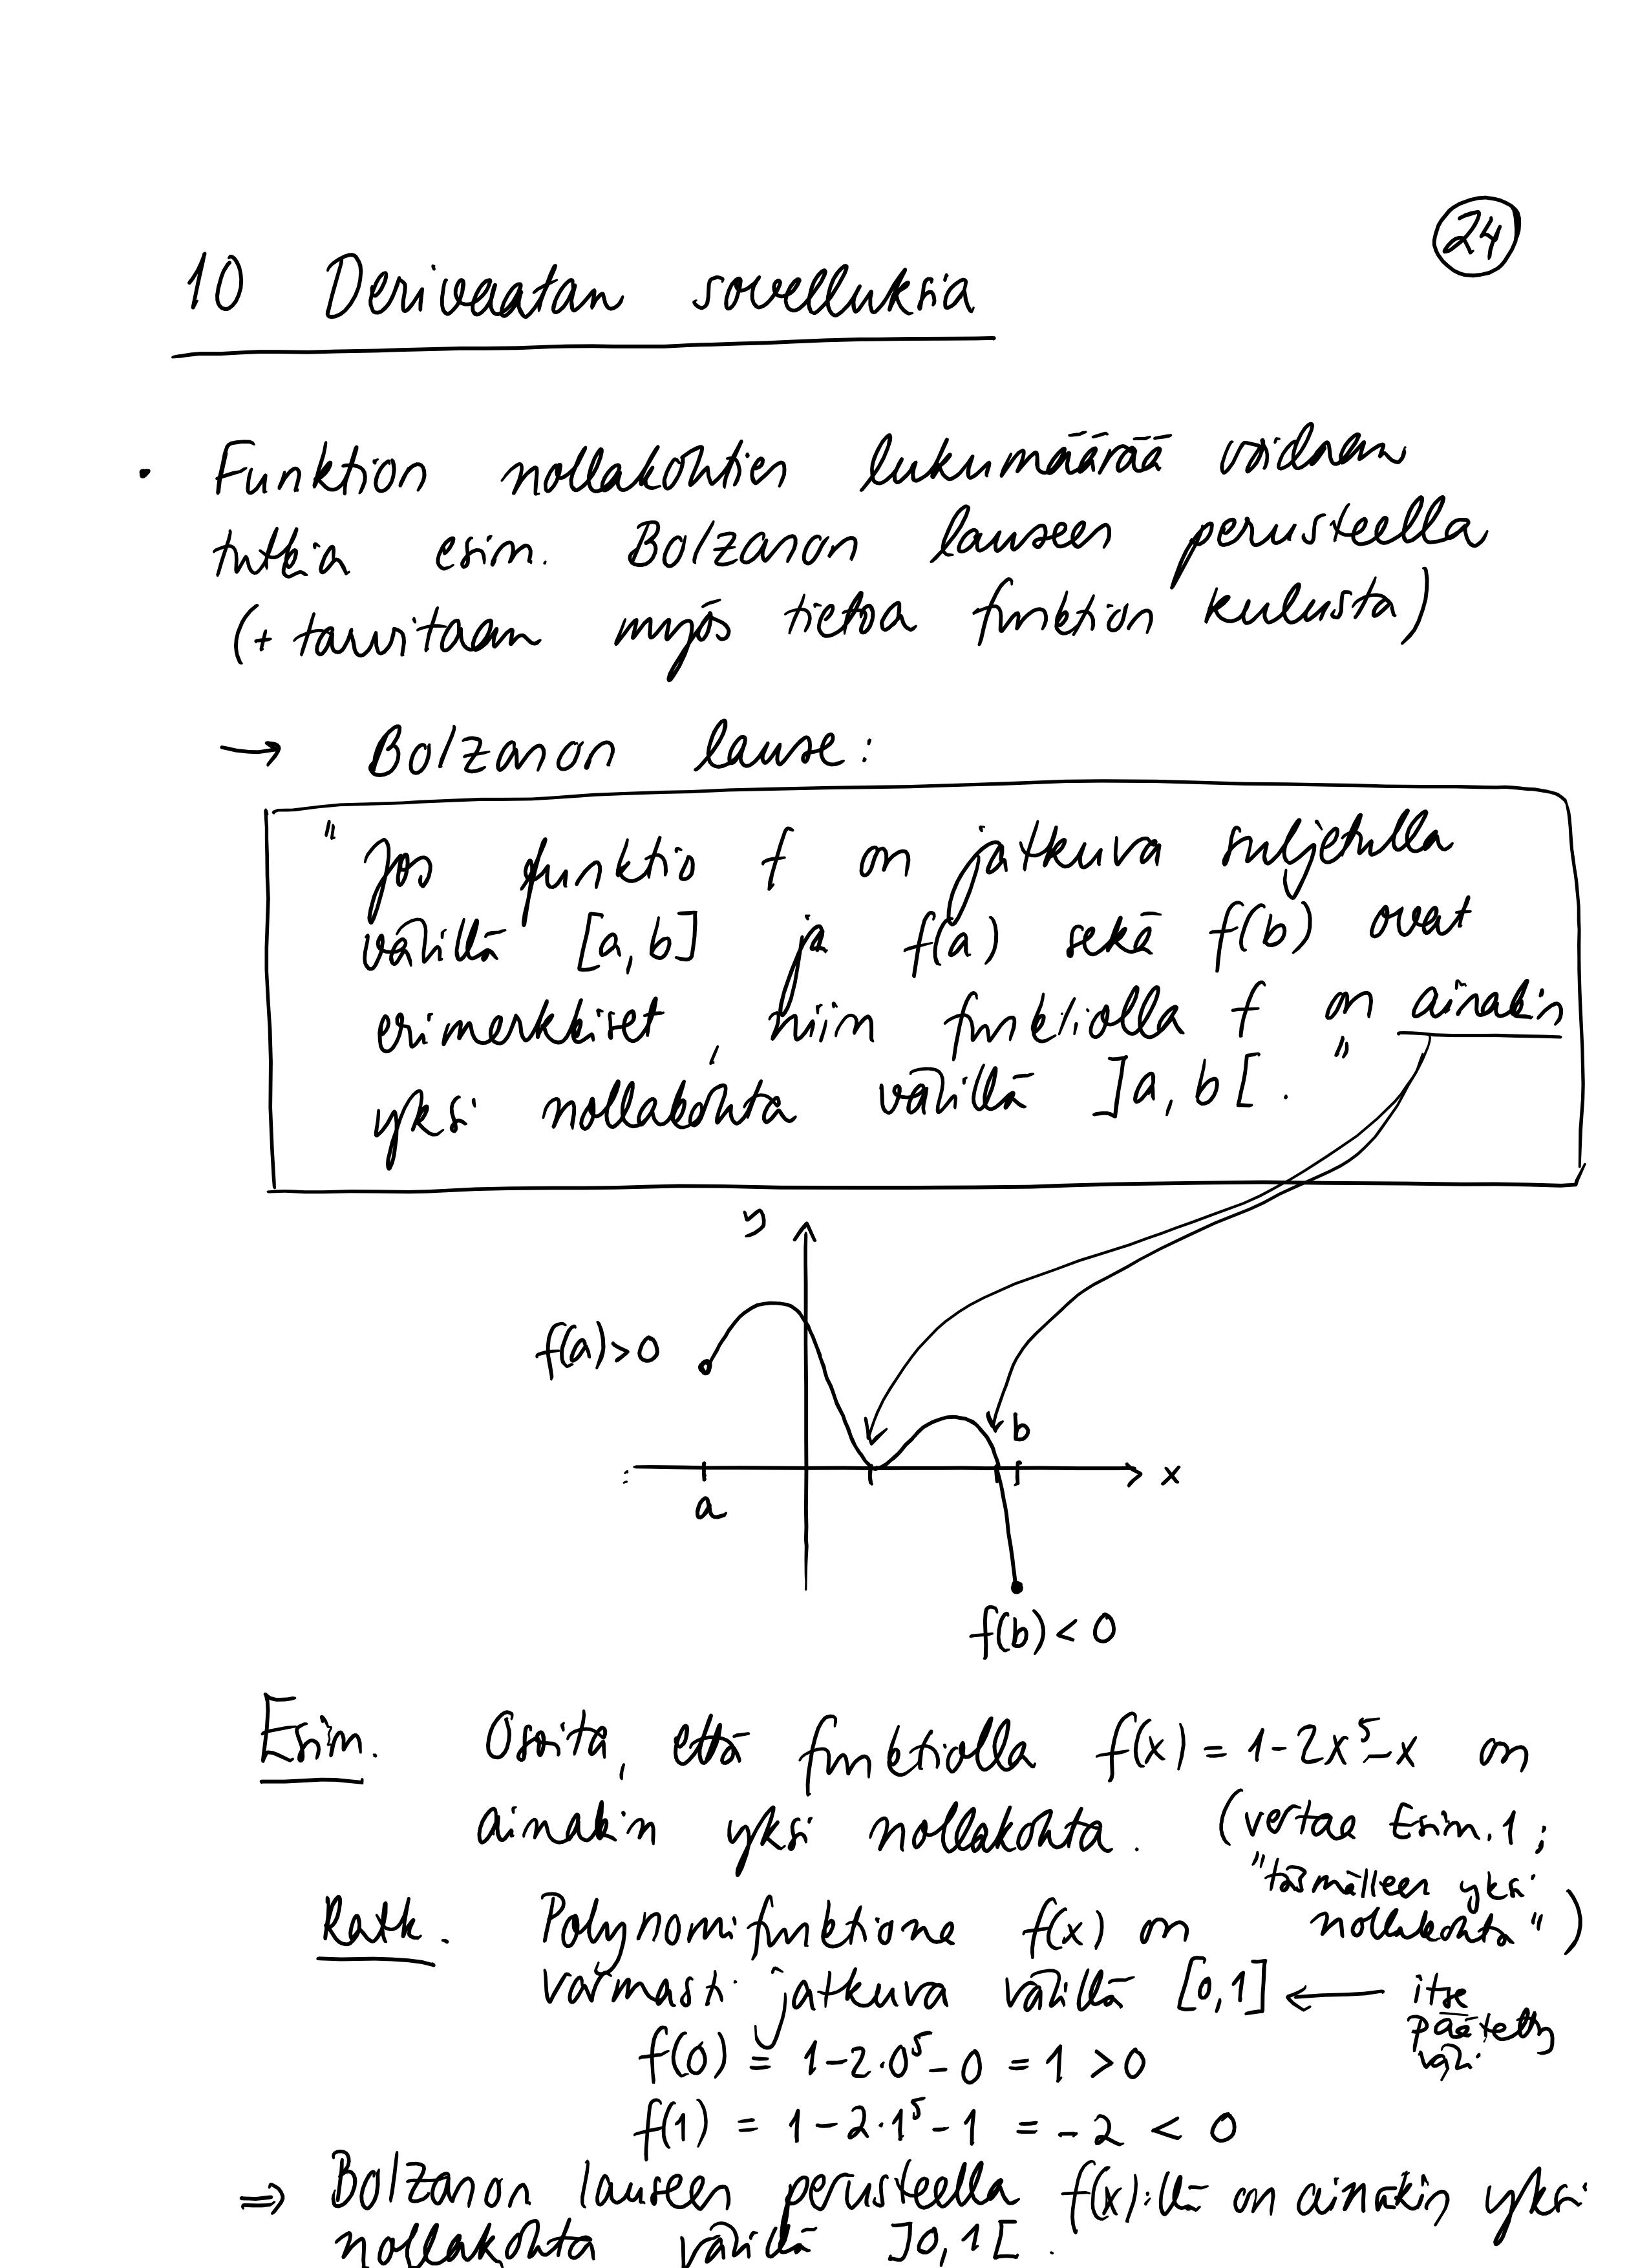 24
10 Derivaatan sovelluksia
· Funktion nollakohtien lukumäärää voidaan
tutkia esim. Bolzanon lauseen perusteella
(+ tarvitaan myös tietoa funktion kulusta)
→ Bolzanon lause:
"Jos funktio f on jatkuva suljetulla
välillä [a,b] ja f(a) sekä f(b) ovat
erimerkkiset, niin funktiolla f on ainakin
yksi nollakohta välillä ]a,b[."
y
f(a)>0
b
x
a
f(b)<0
Esim. Osoita, että funktiolla f(x) = 1-2x⁵-x on
ainakin yksi nollakohta. (vertaa Esim.1;
"täsmälleen yksi
nollakohta")
Ratk. Polynomifunktiona f(x) on
varmasti jatkuva välillä [0,1] ← itse
päätetty
väli
f(0) = 1-2·0⁵-0 = 1 > 0
f(1) = 1-2·1⁵-1 = -2 < 0
⇒ Bolzanon lauseen perusteella f(x):llä on ainakin yksi
nollakohta välillä ]0,1[.